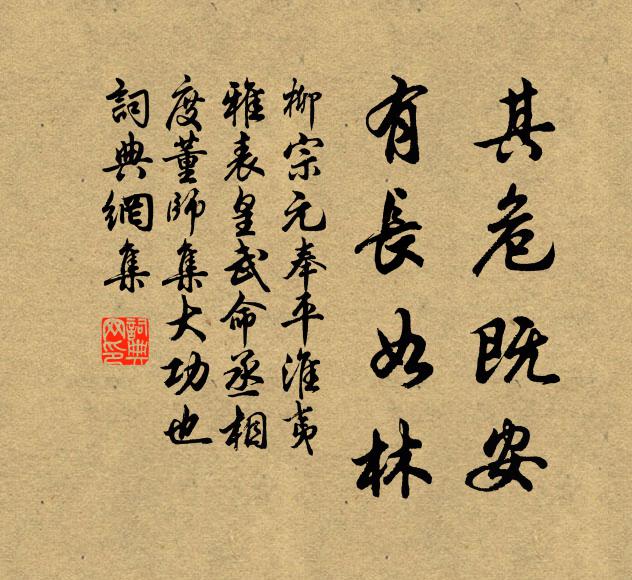 其危既安
有長如林
柳宗元奉平淮夷
雅表皇武命丞相
度董師集大功也
詞典網集
詞典
网印